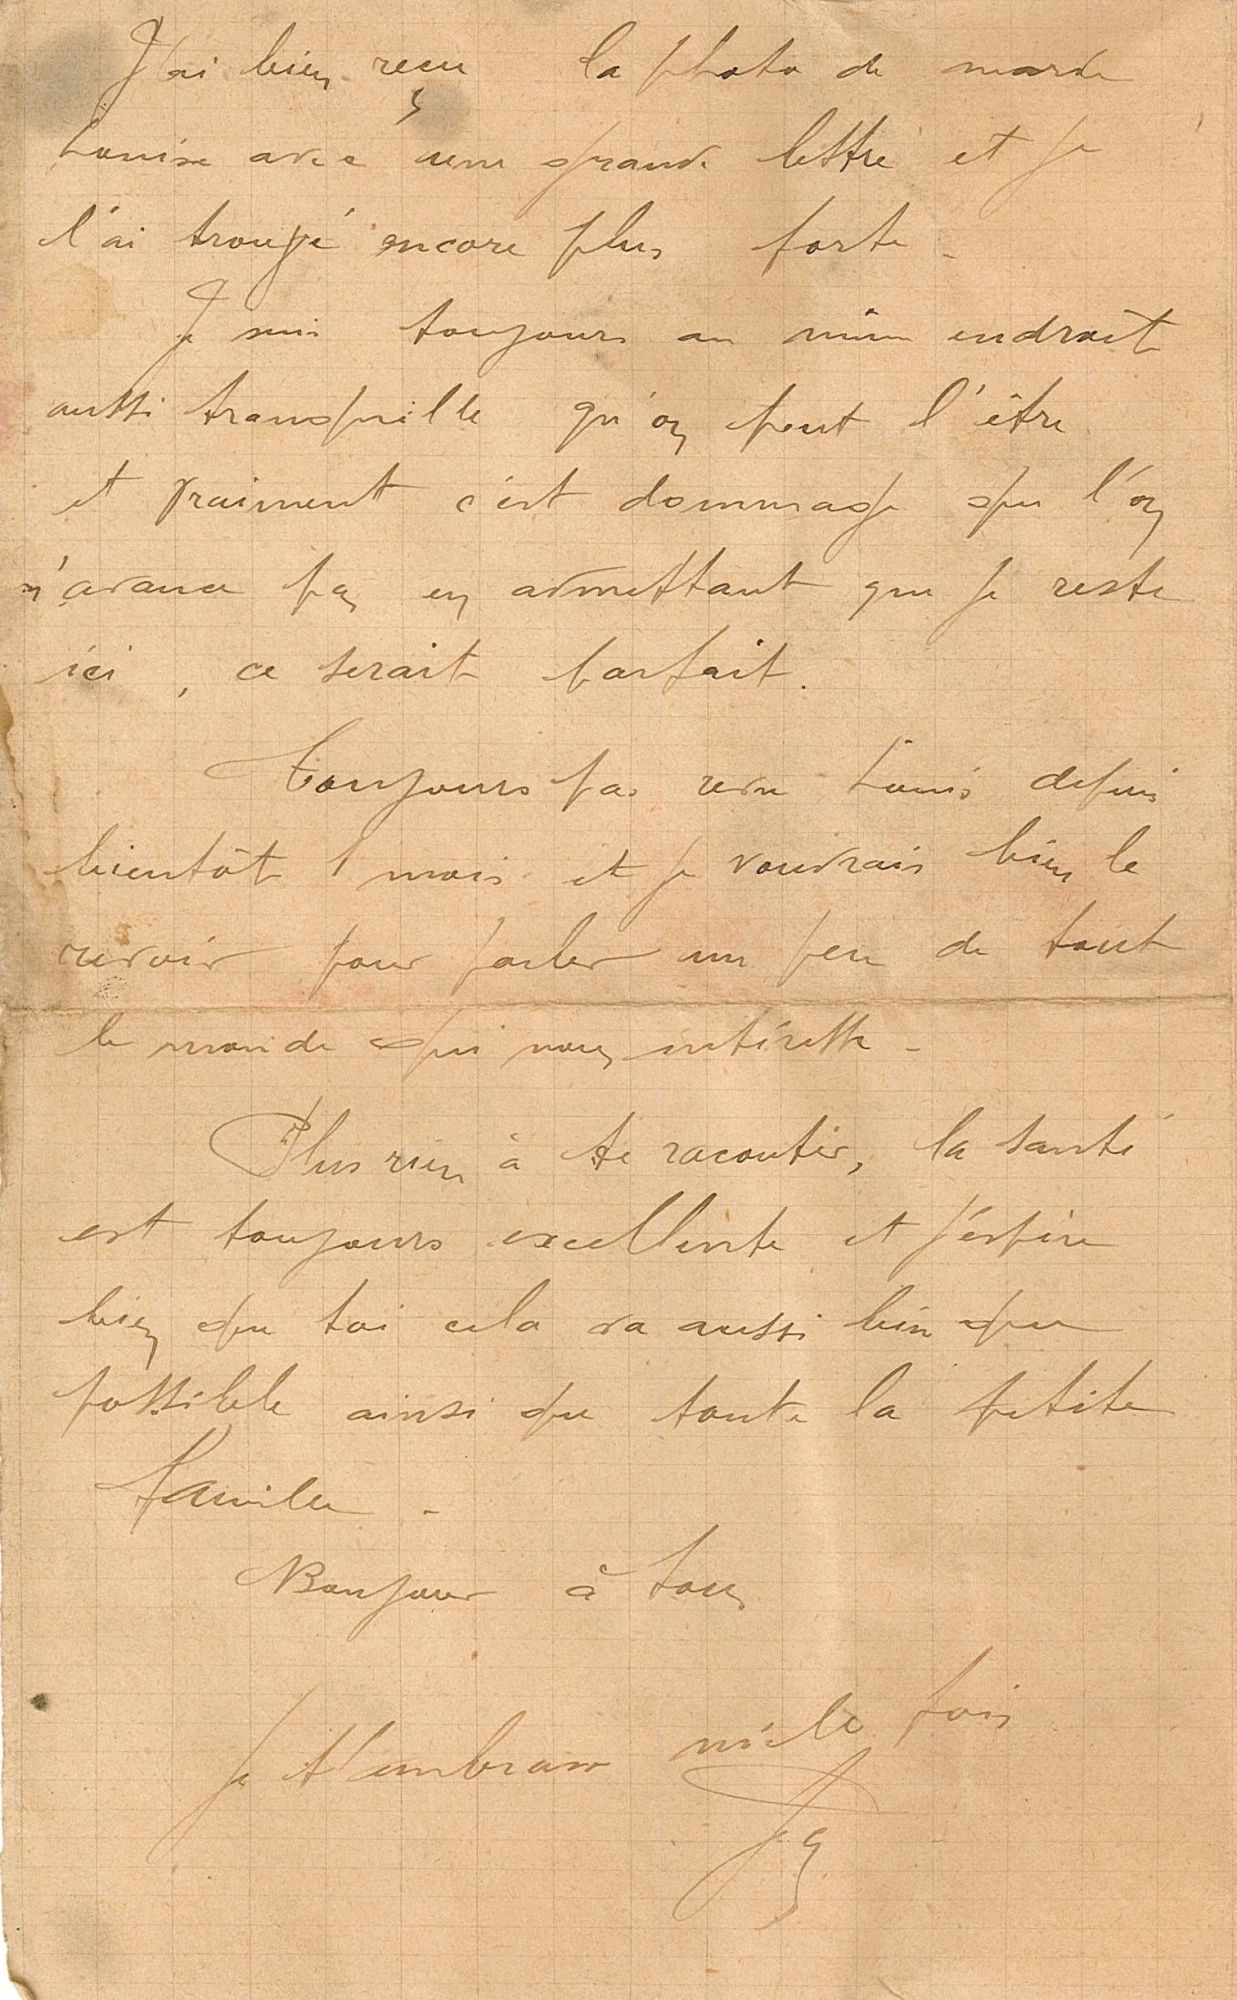 J'ai bien reçu la photo de
Louise avec une grande lettre et je
l'ai trouvé encore plus forte -
Je suis toujours au même endroit
aussi tranquille qu'on peut l'être
et vraiment c'est dommage que l'on
n'avance pas en admettant que je reste
ici, ce serait parfait.
Toujours pas revu Louis depuis
bientôt 1 mois et je voudrais bien le
revoir pour parler un peu de tout
le monde qui nous intéresse -
Plus rien à te raconter, la santé
est toujours excellente et j'espère
bien que toi cela va aussi bien que
possible ainsi que toute la petite
famille -
Bonjour à tous
Je t'embrasse mille fois